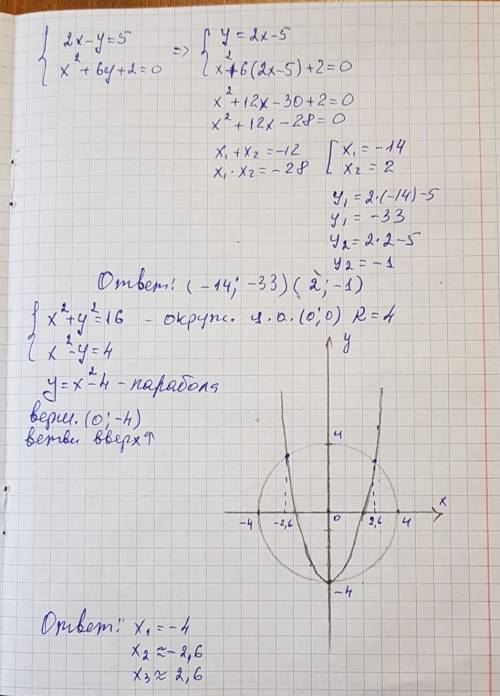 { 2x-y=5 => { y=2x-5
x²+6y+2=0 x²+6(2x-5)+2=0
x²+12x-30+2=0
x²+12x-28=0
x₁+x₂=-12 [ x₁=-14
x₁·x₂=-28 x₂=2
y₁=2·(-14)-5
y₁=-33
y₂=2·2-5
y₂=-1
Ответ: (-14; -33) (2; -1)
{ x²+y²=16 - окруж. ц.о. (0; 0) R=4
x²-y=4
y=x²-4 - парабола
верш. (0; -4)
ветви вверх↑
y
4
x
-4 -2,6 0 2,6 4
-4
Ответ: x₁=-4
x₂≈-2,6
x₃≈2,6